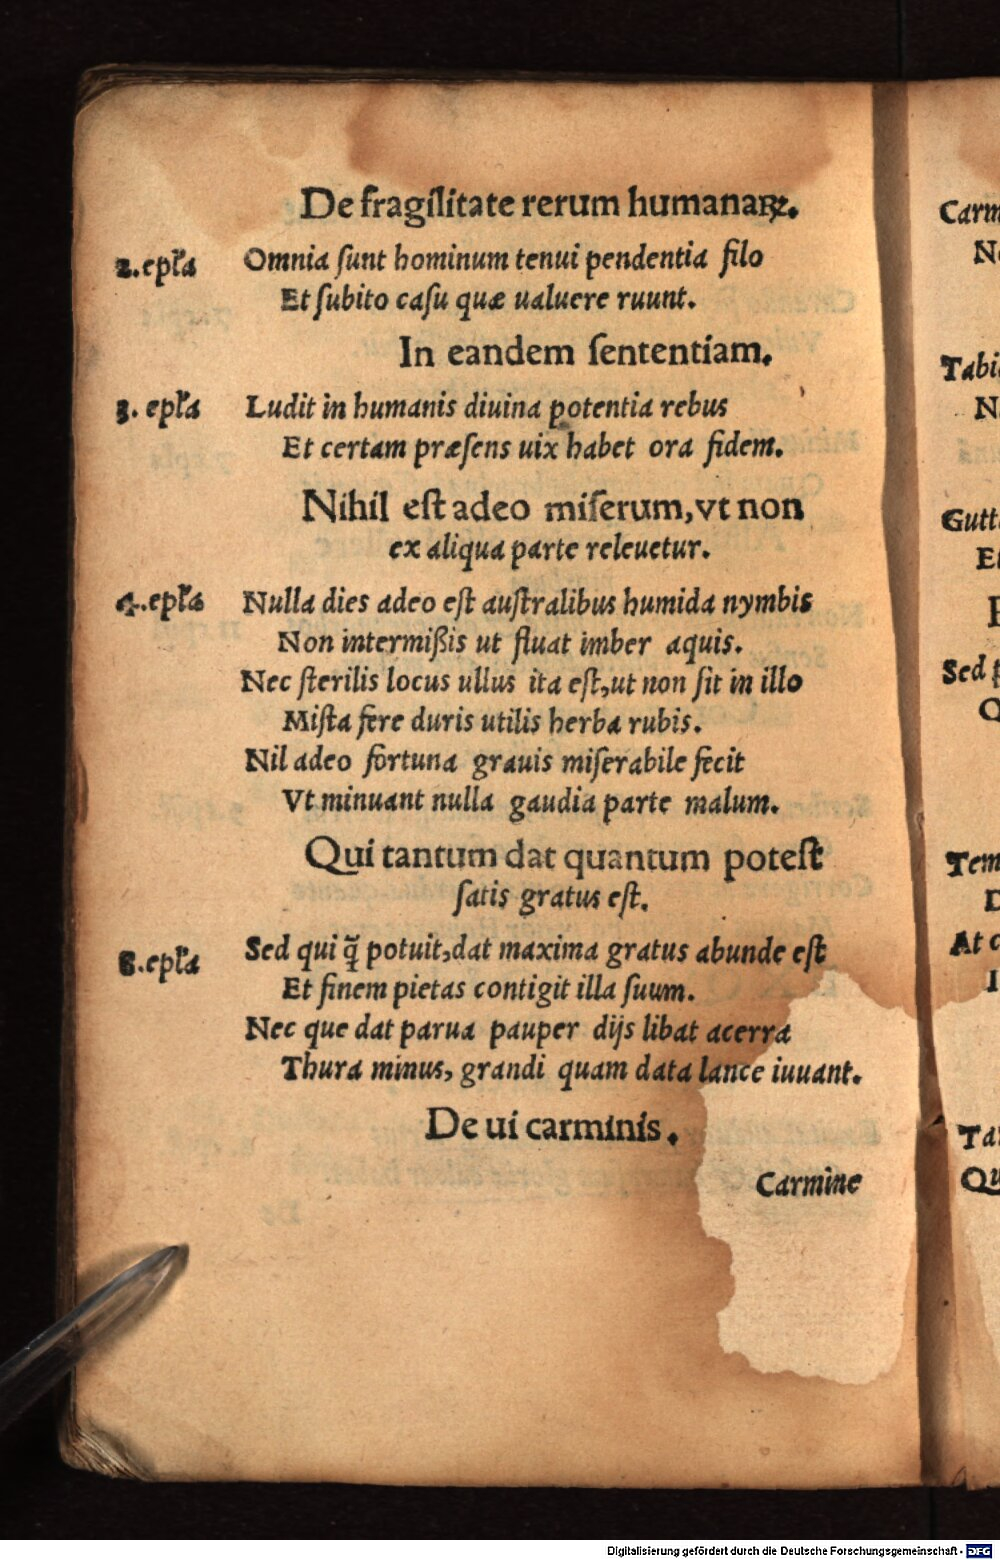 De fragilitate rerum humanaꝝ.
2.epl̃a Omnia ſunt hominum tenui pendentia filo
Et ſubito caſu quæ ualuere ruunt.
In eandem ſententiam.
3. epl̃a Ludit in humanis diuina potentia rebus
Et certam præſens uix habet ora fidem.
Nihil eſt adeo miſerum, vt non
ex aliqua parte releuetur.
4.epl̃a Nulla dies adeo eſt auſtralibus humida nymbis
Non intermißis ut fluat imber aquis.
Nec ſterilis locus ullus ita eſt,ut non ſit in illo
Miſta fere duris utilis herba rubis.
Nil adeo fortuna grauis miſerabile fecit
Vt minuant nulla gaudia parte malum.
Qui tantum dat quantum poteſt
ſatis gratus eſt.
8.epl̃a Sed qui q̃ potuit,dat maxima gratus abunde eſt
Et finem pietas contigit illa ſuum.
Nec que dat parua pauper dijs libat acerra
Thura minus, grandi quam data lance iuuant.
De ui carminis.
Carmine
Carm
N
Tabi
N
Gutt
E
P
Sed p
Q
Tem
D
At c
I
Ta
Qu
Digitalisierung gefördert durch die Deutsche Forschungsgemeinschaft - DFG